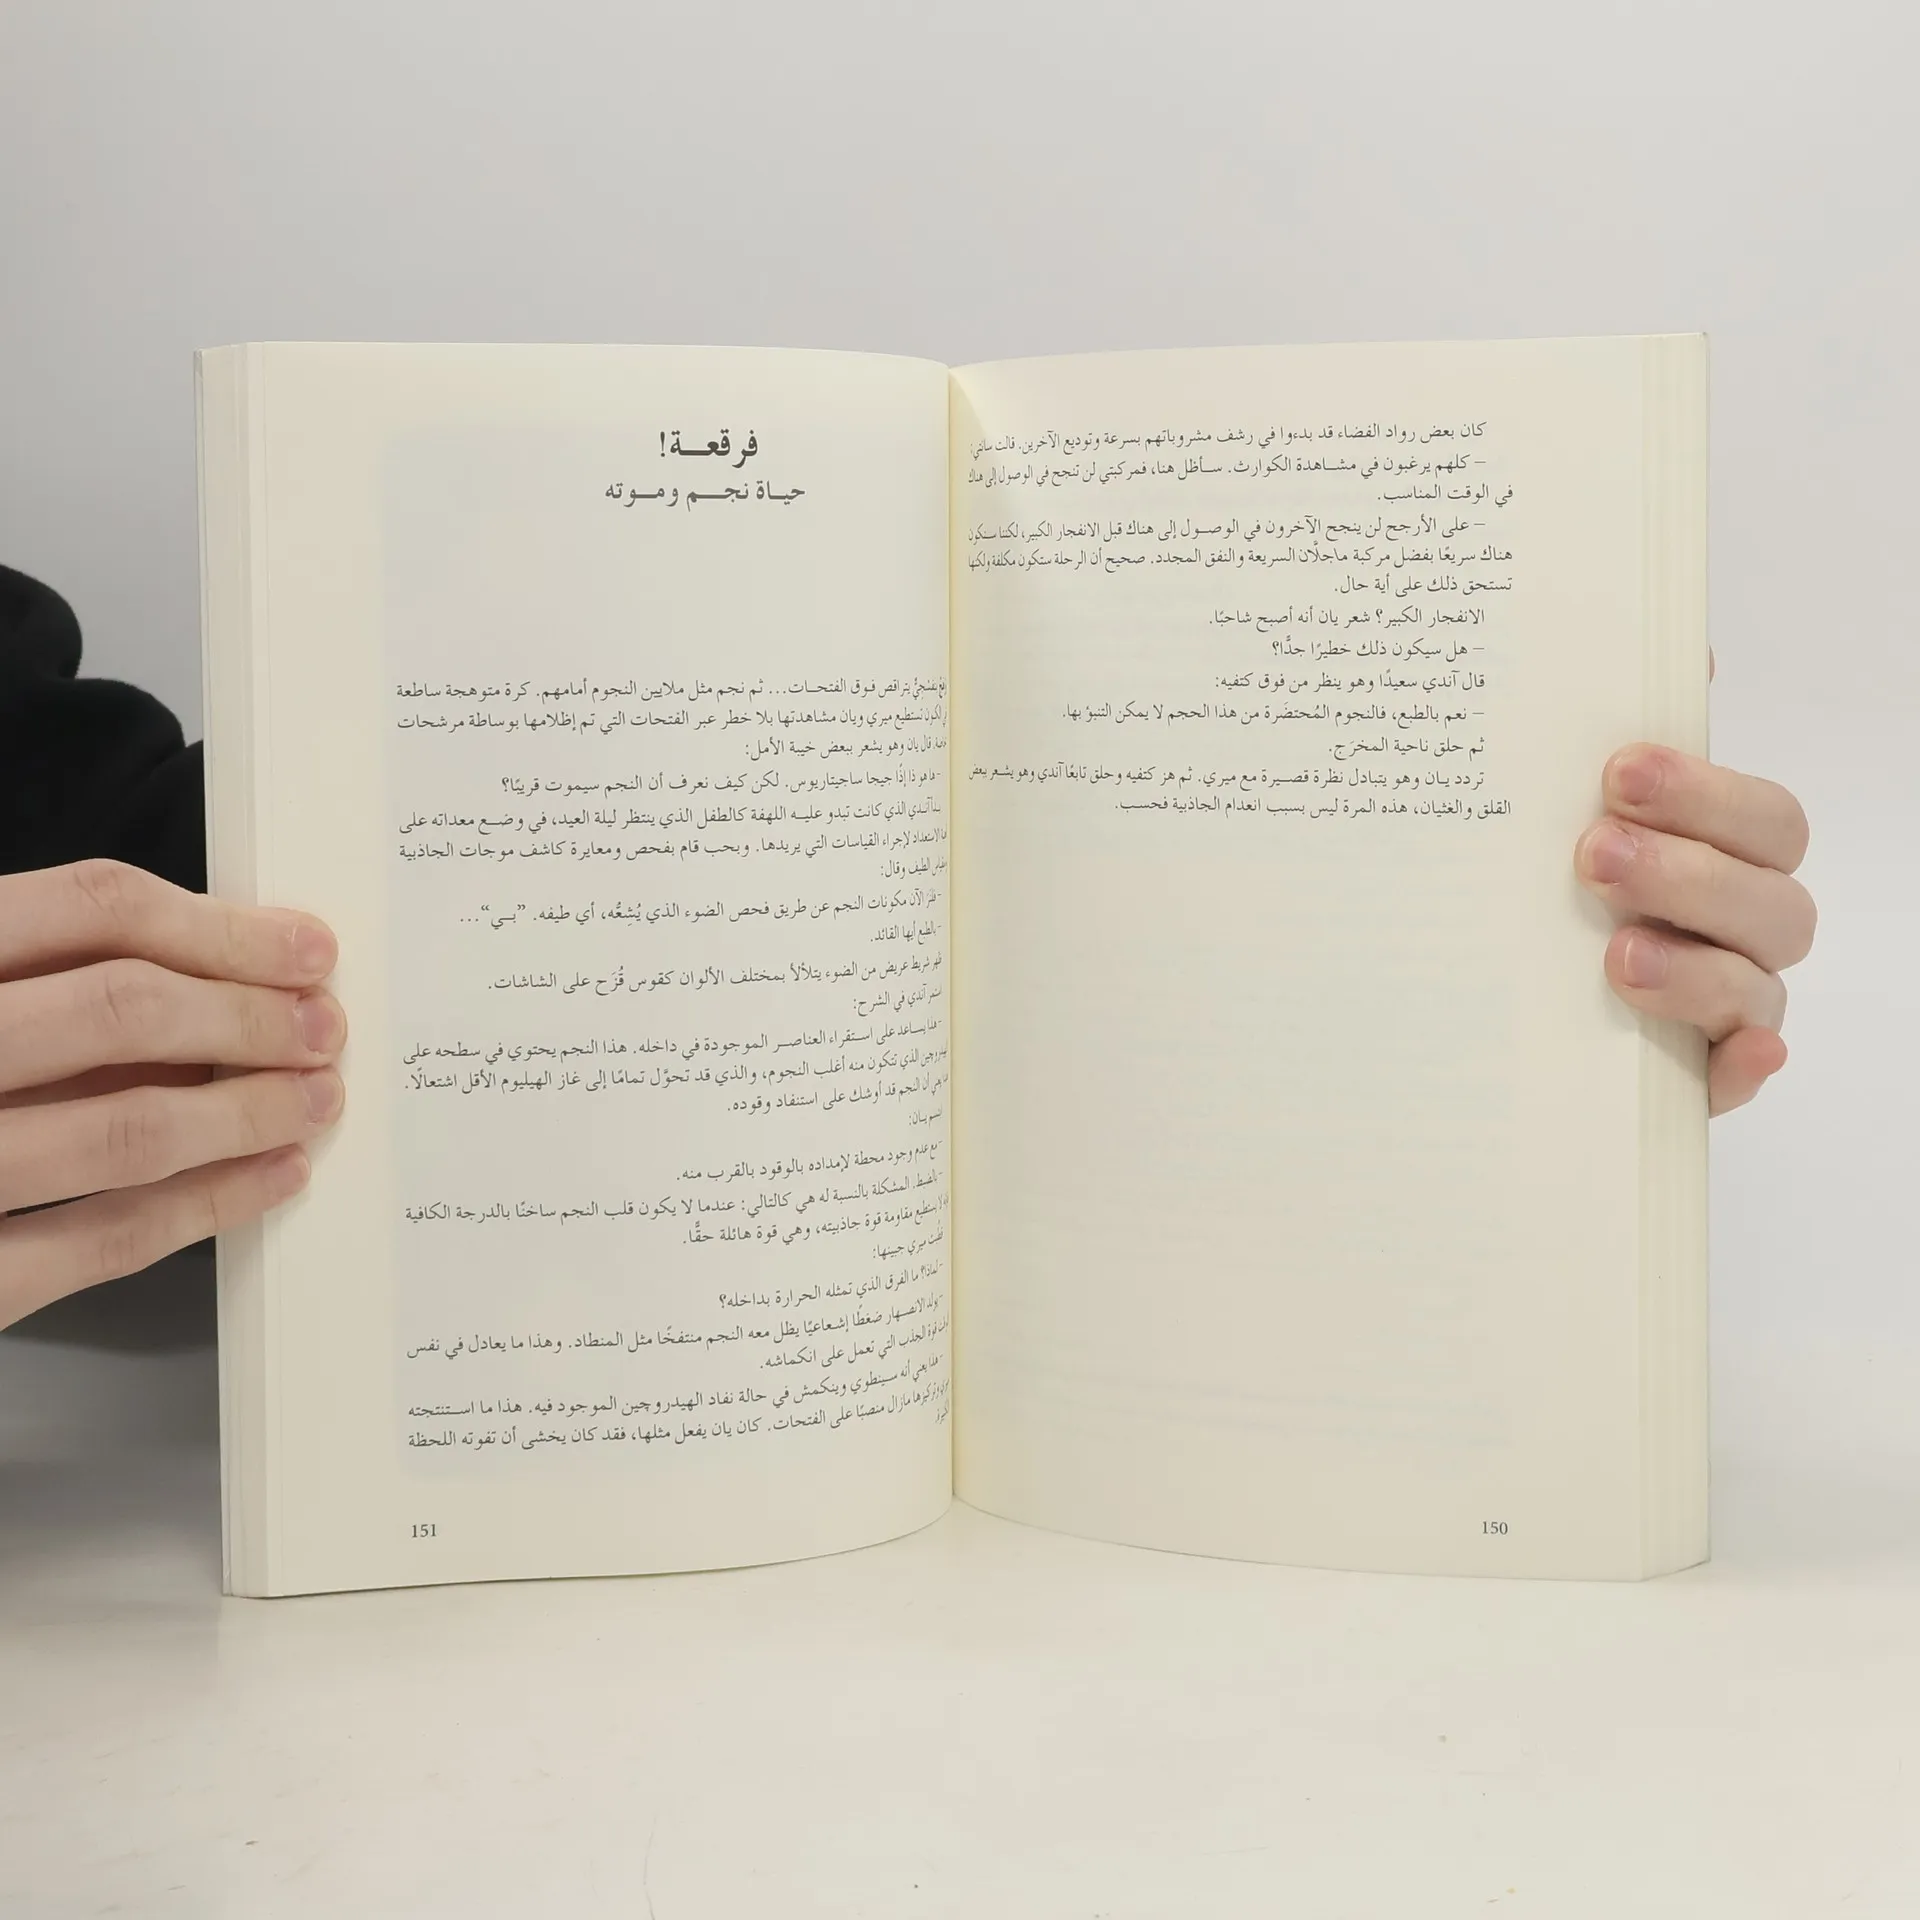 كان بعض رواد الفضاء قد بدءوا في رشف مشروباتهم بسرعة وتوديع الآخرين. قالت سانتي:
– كلهم يرغبون في مشاهدة الكوارث. سأظل هنا، فمركبتي لن تنجح في الوصول إلى هناك
في الوقت المناسب.
– على الأرجح لن ينجح الآخرون في الوصول إلى هناك قبل الانفجار الكبير، لكننا سنكون
هناك سريعًا بفضل مركبة ماجلَّان السريعة والنفق المجدد. صحيح أن الرحلة ستكون مكلفة ولكنها
تستحق ذلك على أية حال.
الانفجار الكبير؟ شعر يان أنه أصبح شاحبًا.
– هل سيكون ذلك خطيرًا جدًّا؟
قال آندي سعيدًا وهو ينظر من فوق كتفيه:
– نعم بالطبع، فالنجوم المُحتضَرة من هذا الحجم لا يمكن التنبؤ بها.
ثم حلق ناحية المخرَج.
تردد يان وهو يتبادل نظرة قصيرة مع ميري. ثم هز كتفيه وحلق تابعًا آندي وهو يشعر ببعض
القلق والغثيان، هذه المرة ليس بسبب انعدام الجاذبية فحسب.
150
فرقعة!
حياة نجم وموته
بنفسجيٌّ يتراقص فوق الفتحات... ثم نجم مثل ملايين النجوم أمامهم. كرة متوهجة ساطعة
في الكون تستطيع ميري ويان مشاهدتها بلا خطر عبر الفتحات التي تم إظلامها بوساطة مرشحات
خاصة. قال يان وهو يشعر ببعض خيبة الأمل:
– ها هو ذا إذًا جيجا ساجيتاريوس. لكن كيف نعرف أن النجم سيموت قريبًا؟
بدأ آندي الذي كانت تبدو عليه اللهفة كالطفل الذي ينتظر ليلة العيد، في وضع معداته على
الاستعداد لإجراء القياسات التي يريدها. وبحب قام بفحص ومعايرة كاشف موجات الجاذبية
ومقياس الطيف وقال:
– فلنرَ الآن مكونات النجم عن طريق فحص الضوء الذي يُشِعُّه، أي طيفه. ”بي“...
– بالطبع أيها القائد.
ظهر شريط عريض من الضوء يتلألأ بمختلف الألوان كقوس قُزَح على الشاشات.
استمر آندي في الشرح:
– هذا يساعد على استقراء العناصر الموجودة في داخله. هذا النجم يحتوي في سطحه على
الهيدروچين الذي تتكون منه أغلب النجوم، والذي قد تحوَّل تمامًا إلى غاز الهيليوم الأقل اشتعالًا.
هذا يعني أن النجم قد أوشك على استنفاد وقوده.
ابتسم يان:
– مع عدم وجود محطة لإمداده بالوقود بالقرب منه.
– بالضبط. المشكلة بالنسبة له هي كالتالي: عندما لا يكون قلب النجم ساخنًا بالدرجة الكافية
فإنه لا يستطيع مقاومة قوة جاذبيته، وهي قوة هائلة حقًّا.
قطَّبت ميري جبينها:
– لماذا؟ ما الفرق الذي تمثله الحرارة بداخله؟
– يولد الانصهار ضغطًا إشعاعيًا يظل معه النجم منتفخًا مثل المنطاد. وهذا ما يعادل في نفس
الوقت قوة الجذب التي تعمل على انكماشه.
– هذا يعني أنه سينطوي وينكمش في حالة نفاد الهيدروچين الموجود فيه. هذا ما استنتجته
وتركيزها مازال منصبًا على الفتحات. كان يان يفعل مثلها، فقد كان يخشى أن تفوته اللحظة
151